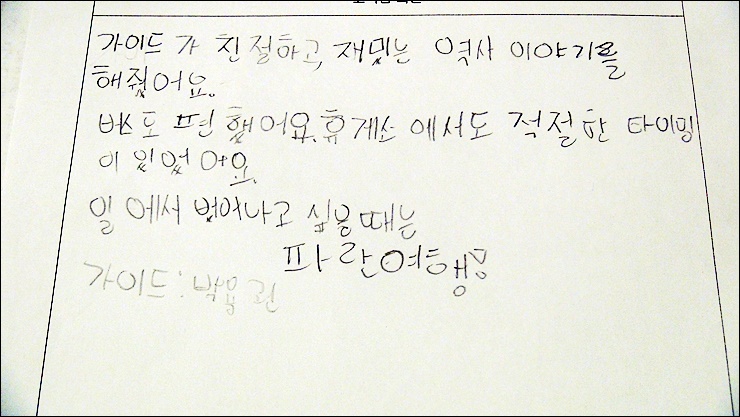 가이드가 친절하고, 재밌는 역사 이야기를
해줬어요.
버스도 편했어요. 휴게소에서도 적절한 타이밍
이 있었어요.
일에서 벗어나고 싶을때는
파란여행
가이드: